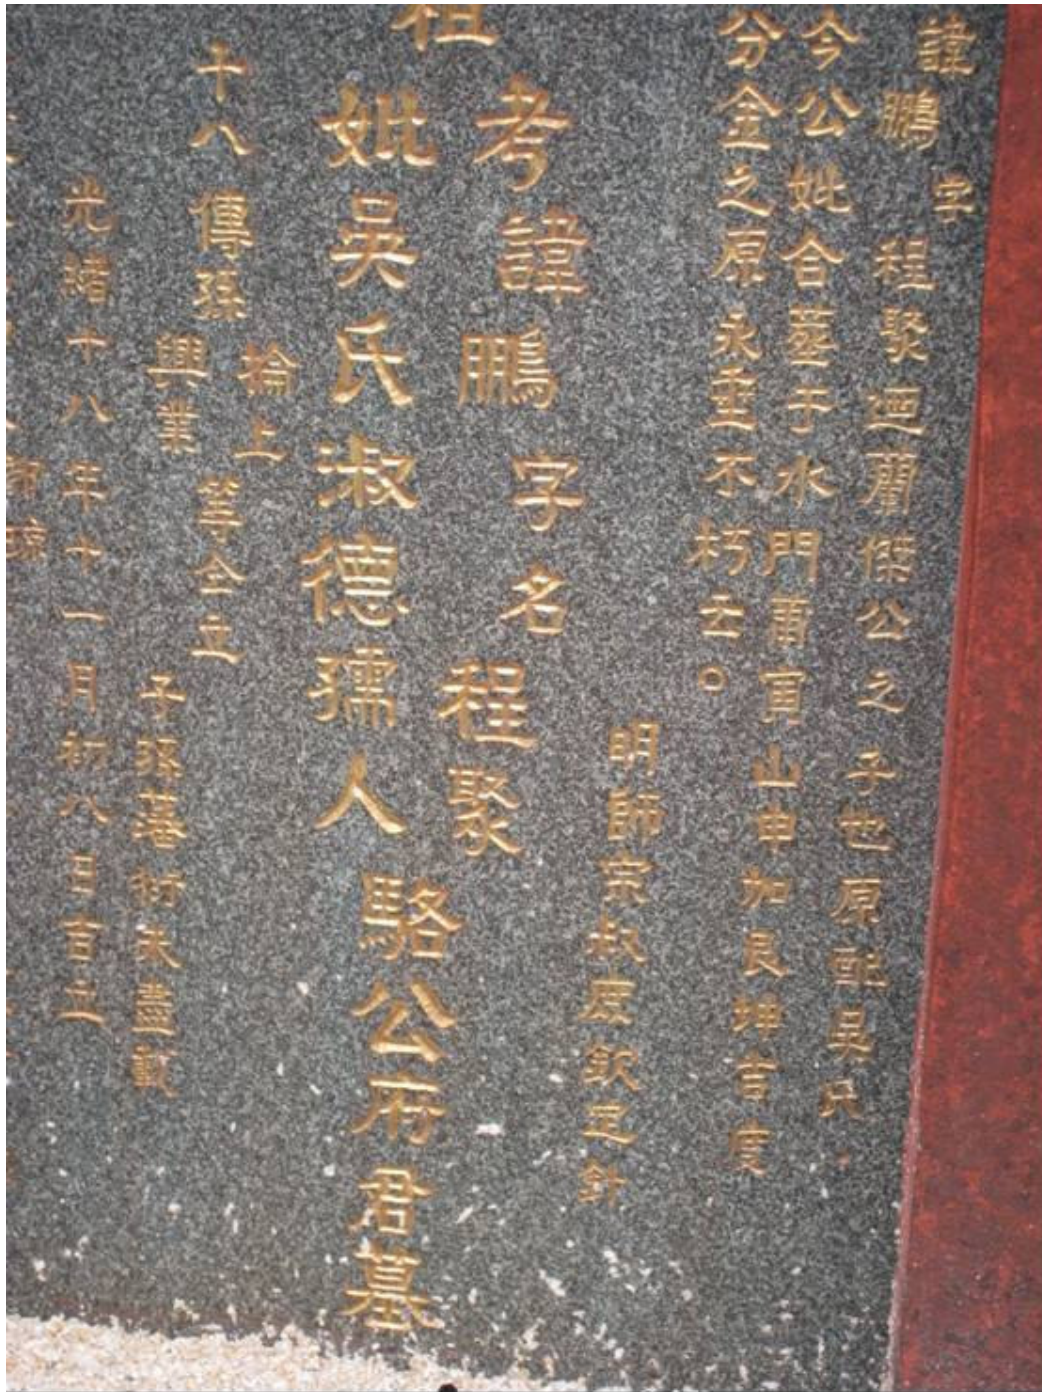 諱鵬字程聚廼蘭傑公之子也原配吳氏
今公妣合墓于水門甫寅山申加艮坤吉度
分金之原永垂不朽云。
明師宗叔庶欽定針
祖
考諱鵬字名程聚
妣吳氏淑德孺人
駱公府君墓
十八傳孫
掄上
興業
等仝立
子孫蕃衍未盡載
光緒十八年十一月初八日吉立